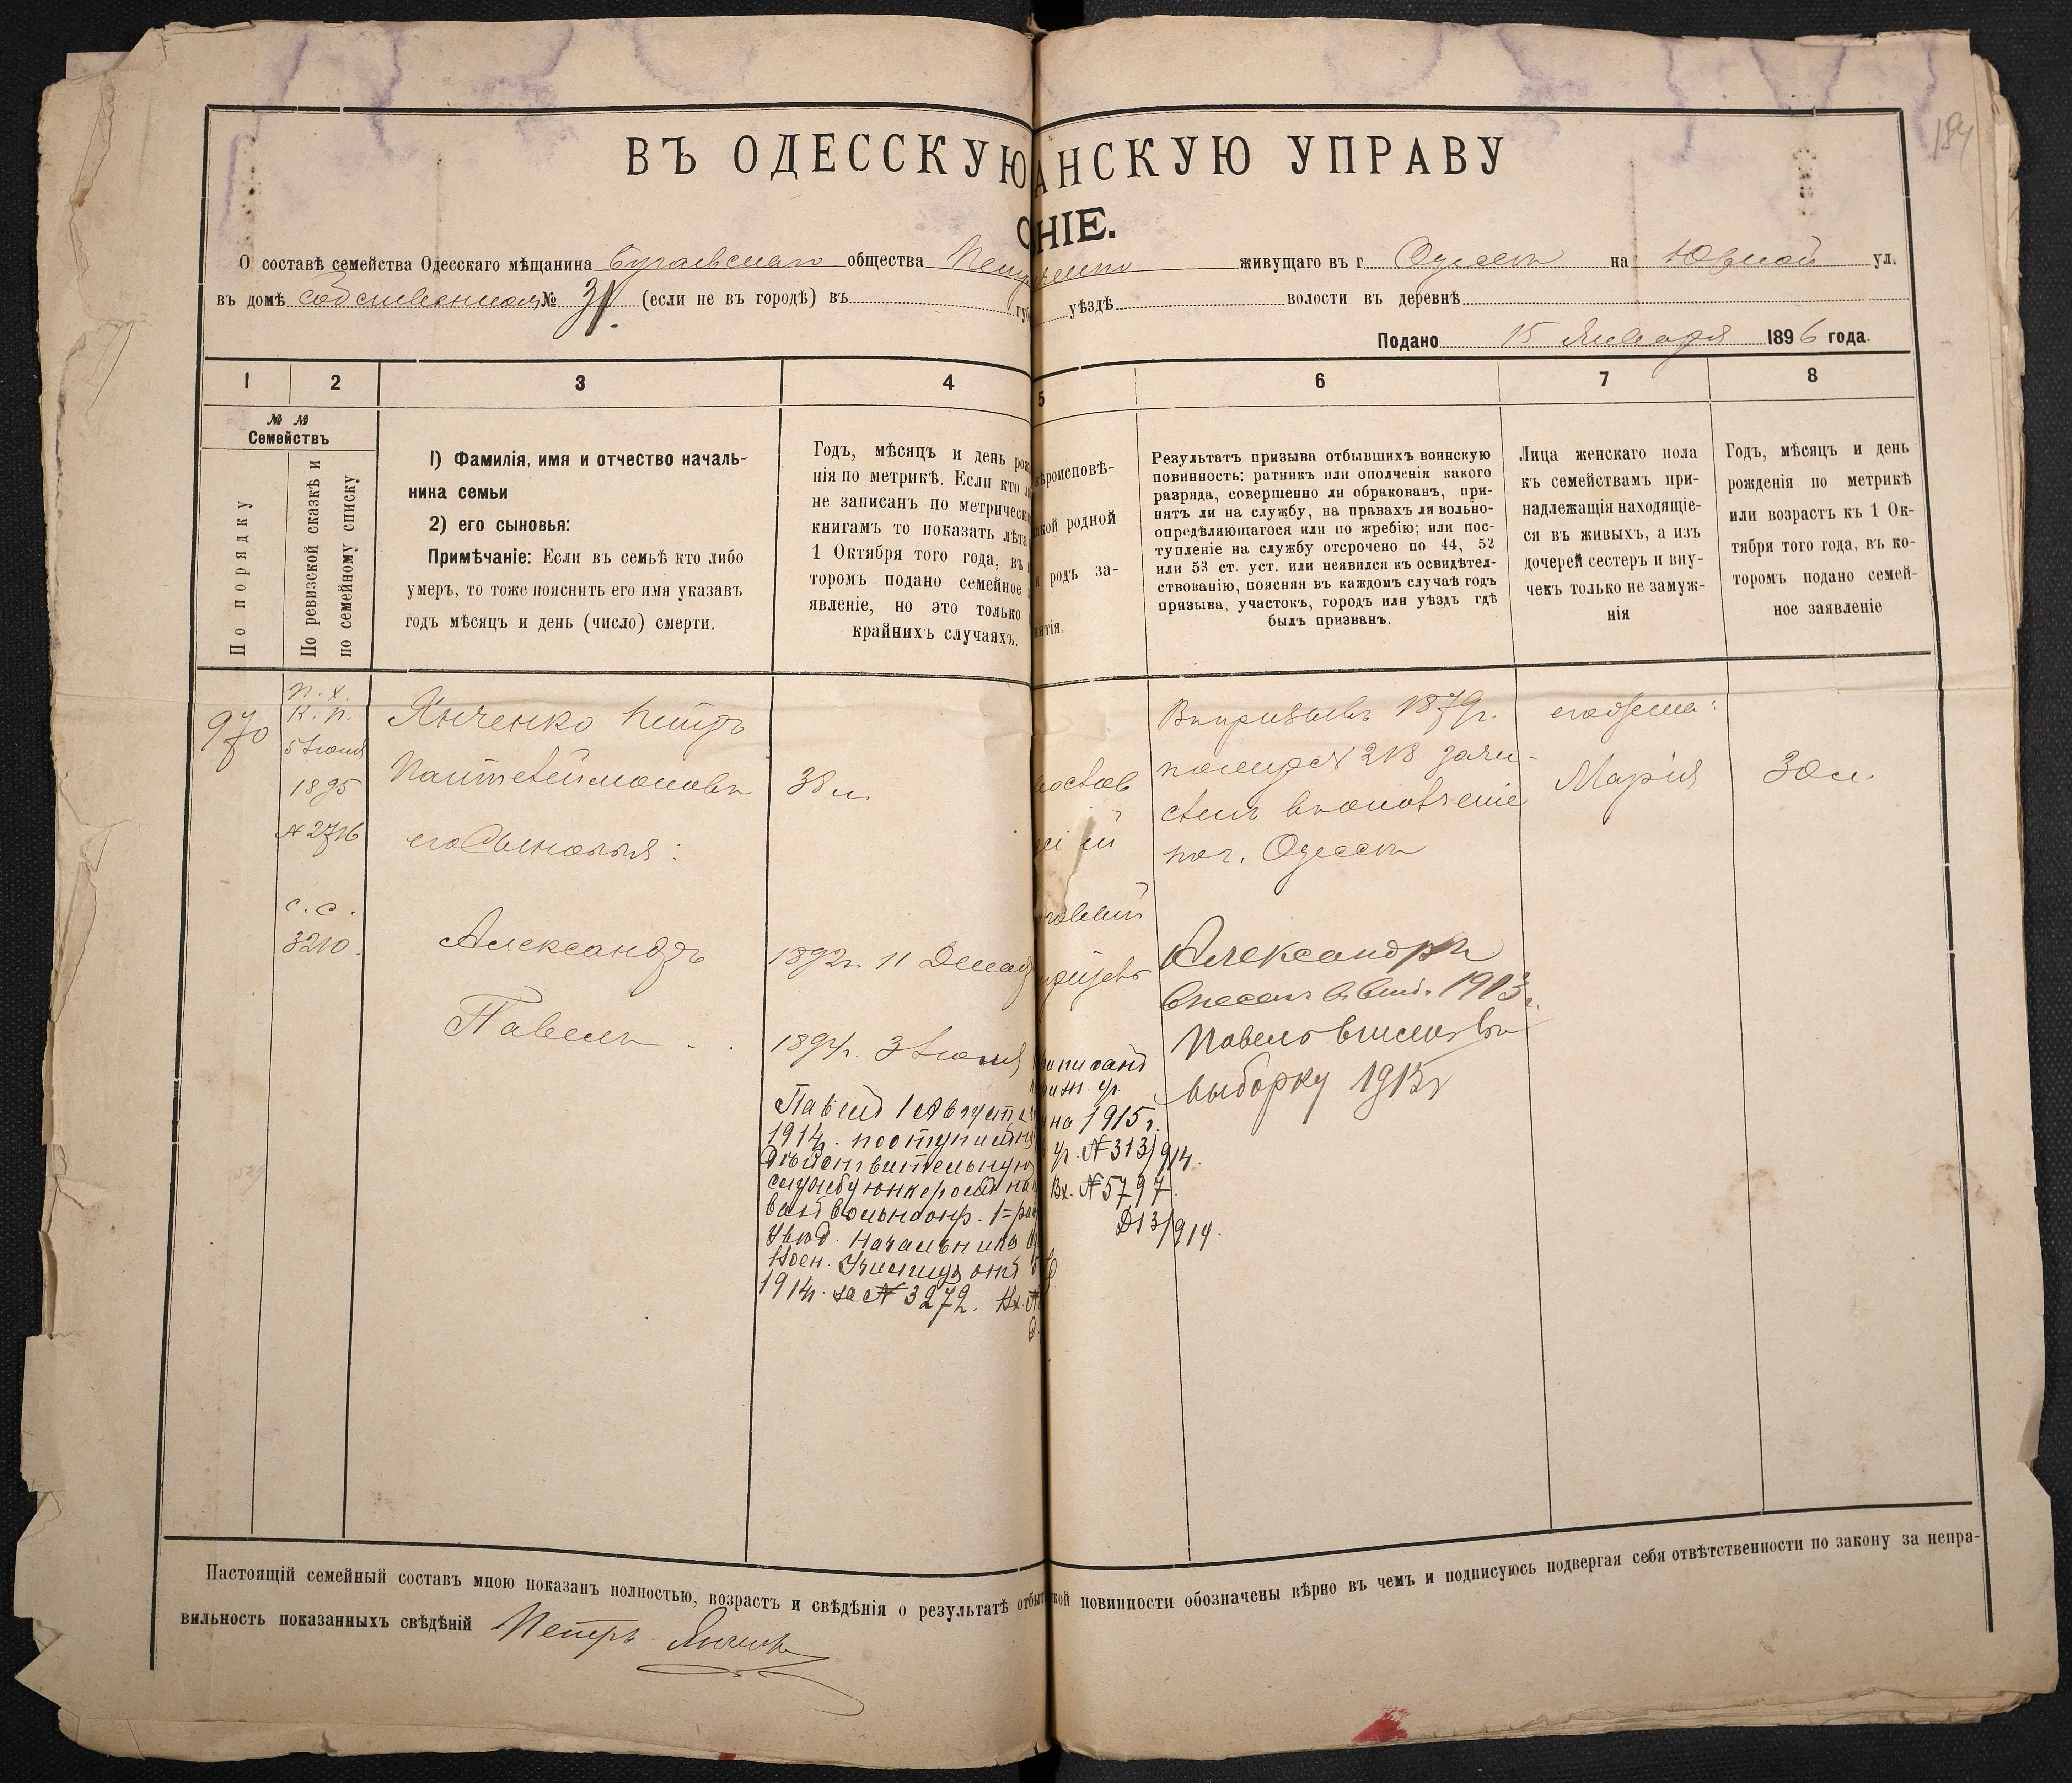 184
ВЪ ОДЕССКУЮ АНСКУЮ УПРАВУ
НІЕ.
О составѣ семейства Одесскаго мѣщанина общества живущаго въ г. Одессѣ на Южной ул.
въ домѣ собственномъ № (если не въ городѣ) въ уѣздѣ волости въ деревнѣ
Подано 15 Января 1896 года.
1 2 3 4 5 6 7 8
№ №
Семействъ
По порядку
По ревизской сказкѣ и
по семейному списку
1) Фамилія, имя и отчество началь-
ника семьи
2) его сыновья:
Примѣчаніе: Если въ семьѣ кто либо
умеръ, то тоже пояснить его имя указавъ
годъ мѣсяцъ и день (число) смерти.
Годъ, мѣсяцъ и день рож
нія по метрикѣ. Если кто
не записанъ по метрическ
книгамъ то показать лѣта
1 Октября того года, въ
торомъ подано семейное
явленіе, но это только
крайнихъ случаяхъ.
ѣроисповѣ-
кой родной
и родъ за-
нятія.
Результатъ призыва отбывшихъ воинскую
повинность: ратникъ или ополченія какого
разряда, совершенно ли обракованъ, при-
нятъ ли на службу, на правахъ ли вольно-
опредѣляющагося или по жребію; или пос-
тупленіе на службу отсрочено по 44, 52
или 53 ст. уст. или неявился къ освидѣтел-
ствованію, поясняя въ каждомъ случаѣ годъ
призыва, участокъ, городъ или уѣздъ гдѣ
былъ призванъ.
Лица женскаго пола
къ семействамъ при-
надлежащія находящіе-
ся въ живыхъ, а изъ
дочерей сестеръ и вну-
чекъ только не замуж-
нія
Годъ, мѣсяцъ и день
рожденія по метрикѣ
или возрастъ къ 1 Ок-
тября того года, въ ко-
торомъ подано семей-
ное заявленіе
970
п. х.
к. п.
5 Іюня
1895
№ 2716
с. с.
3210.
Янченко Петръ
Пантелеймоновъ
его сыновья:
Александръ
Павелъ
38 л
1892 г. 11 Декаб
1894 г. 3 Іюня
Павелъ 1 Августа
1914 г. поступилъ на
дѣйствительную
службу юнкеромъ на
вольноопр. 1=раз
Увѣд. Начальника
Воен. Училища отъ
1914 г. за № 3272. Вх. №
на 1915 г.
№ 313/914.
Вх. № 5797
Д 13/914.
Въ призывѣ 1879 г.
по № 218 зачи-
сленъ въ ополченіе
по г. Одессѣ
Александръ
внесенъ въ 1913 г.
Павелъ внесенъ въ
выборку 1915 г
его жена:
Марія
30 л.
Настоящій семейный составъ мною показанъ полностью, возрастъ и свѣдѣнія о результатѣ отбыт кой повинности обозначены вѣрно въ чемъ и подписуюсь подвергая себя отвѣтственности по закону за непра-
вильность показанныхъ свѣдѣній Петръ Янченко